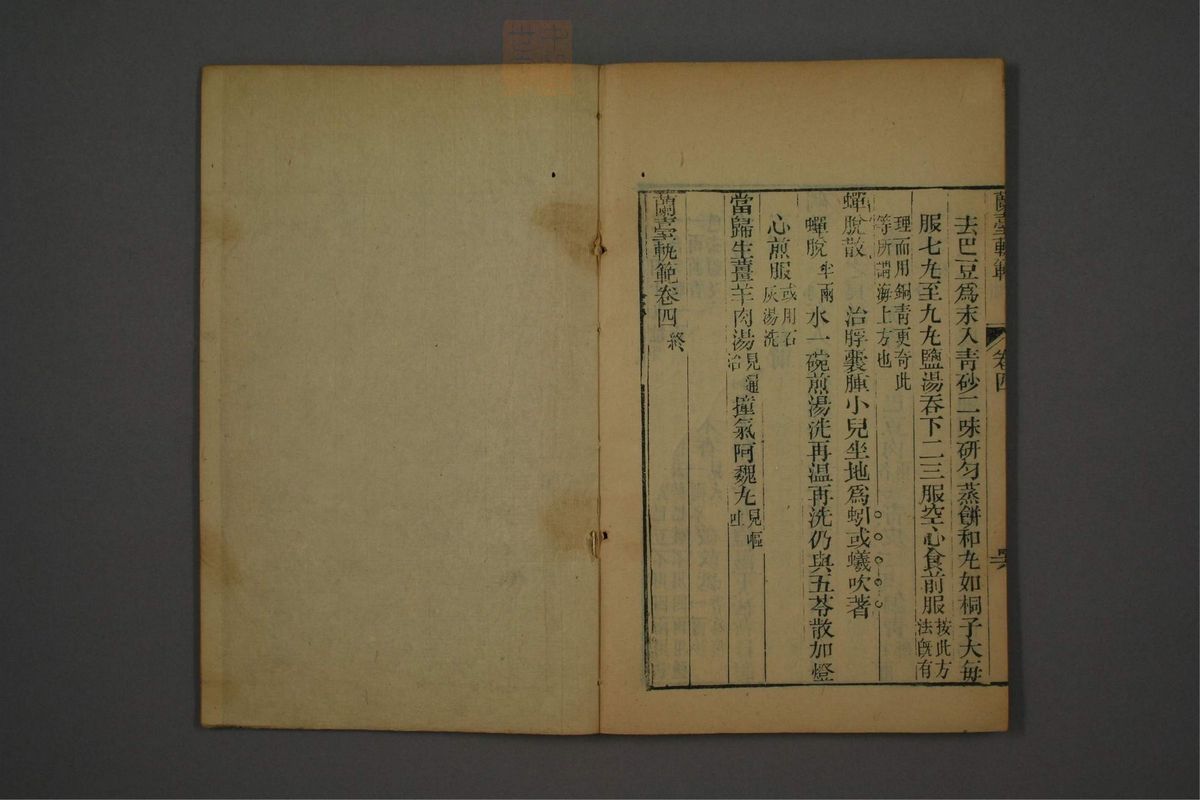 蘭臺軌範
卷四
去巴豆爲末入青砂二味研勻蒸餅和丸如桐子大每
服七丸至九丸鹽湯吞下二三服空心食前服按此方
法旣有
理而用銅青更奇此
等所謂海上方也
蟬脫散 治脬囊腫小兒坐地爲蚓或蟻吹著
蟬脫半兩水一碗煎湯洗再温再洗仍與五苓散加燈
心煎服或用石
灰湯洗
當歸生薑羊肉湯見通
治 撞氣阿魏丸見嘔
吐
蘭臺軌範卷四終